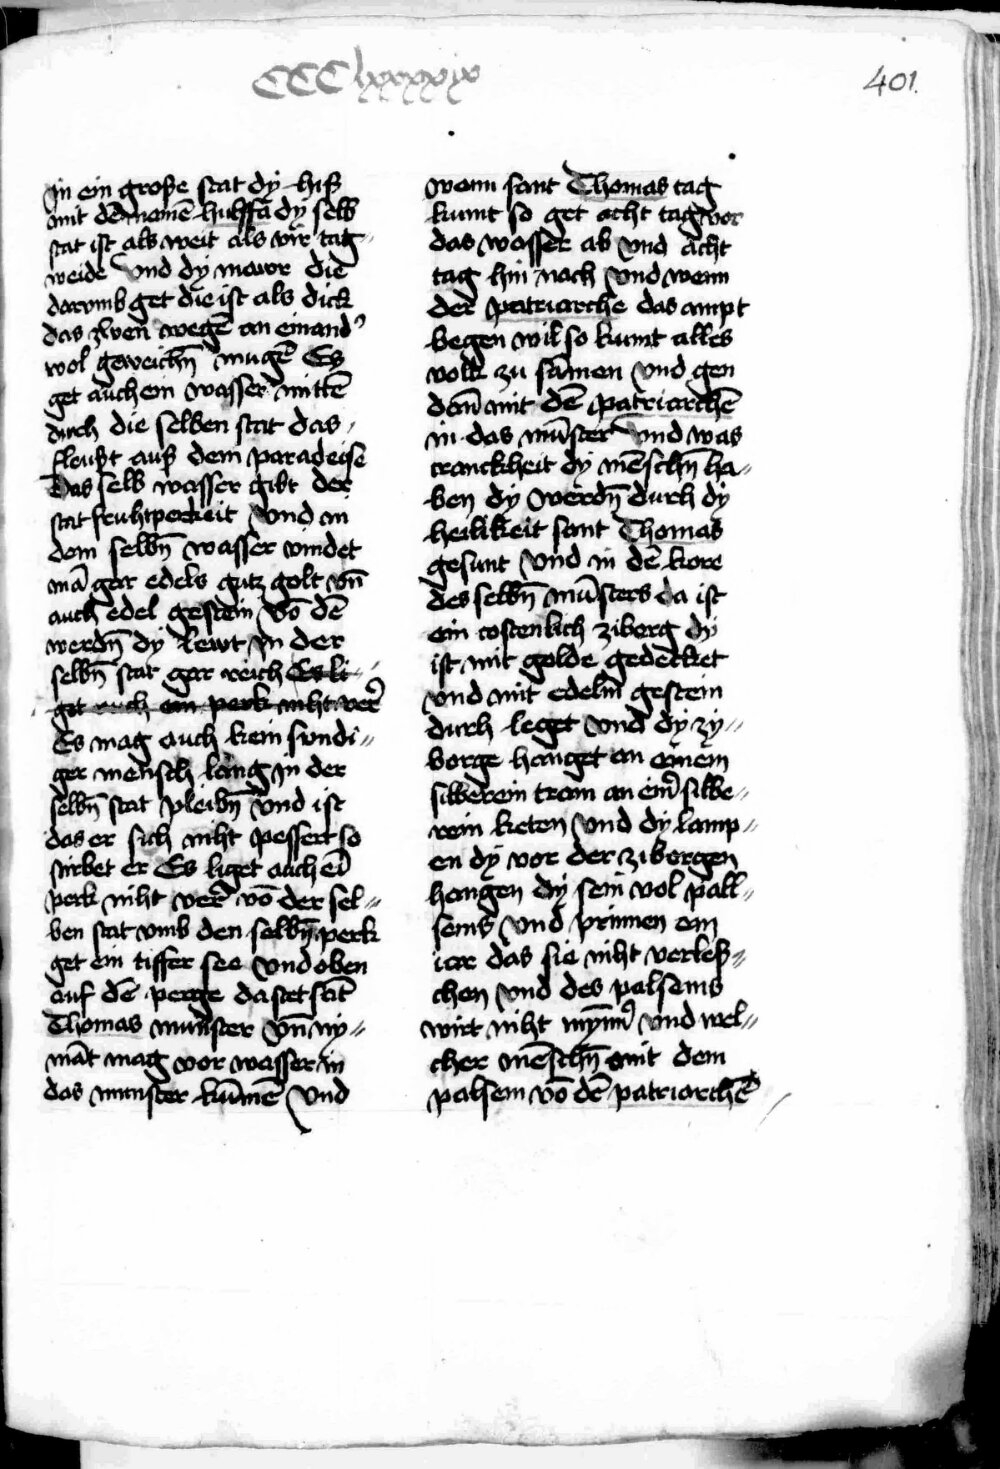 CCClxxxxix
401.
In ein große stat dy hiß
mit dē namē hulffa dy selb
stat ist als weit als vir tag
weide vnd dy mawr die
darvmb get die ist als dick
das zwen wegē an einand'
wol geweichn̄ mugē Es
get auch ein wasser mittē
durch die selben stat das
fleußt auß dem paradeise
Das selb wasser gibt der
stat fruhtperkeit vnd in
dem selbn̄ wasser vindet
mā gar edels gutz golt vn̄
auch edel gestein vō dē
werdn̄ dy lewt in der
selbn̄ stat gar reich Es li-
get auch ein perk niht verr
Es mag auch kein sundi-
ger mensch lang in der
selbn̄ stat pleibn̄ vnd ist
das er sich niht pessert so
stirbet er Es liget auch eī
perk niht verr vō der sel-
ben stat vmb den selbn̄ perk
get ein tiffer see vnd oben
auf dē perge da stet sāt
Thomas munster vn̄ ny-
māt mag vor wasser in
das munster kūmē vnd
wenn sant Thomas tag
kumt so get acht tag vor
das wasser ab vnd acht
tag hin nach vnd wenn
der patriarche das ampt
begen wil so kumt alles
volk zu samen vnd gen
dan̄ mit dē patriarchē
in das mūster vnd was
cranckheit dy mēschn̄ ha-
ben dy werdn̄ durch dy
heilikeit sant Thomas
gesunt vnd in dē kore
des selbn̄ mūsters da ist
ein costenlich ziborg dy
ist mit golde gedecket
vnd mit edelm gestein
durch leget vnd dy zy-
borge hanget an einem
silberein tram an eim silbe-
rein keten vnd dy lamp-
en dy vor der ziborgen
hangen dy sein vol pall-
sems vnd prinnen ein
iar das sie niht verles-
chen vnd des palsems
wirt niht mynn' vnd wel-
cher mēschn̄ mit dem
palsem vō dē patriarchē